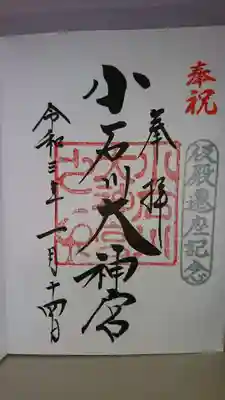 奉祝
仮殿遷座記念
奉拝
小石川大神宮
令和三年一月十四日